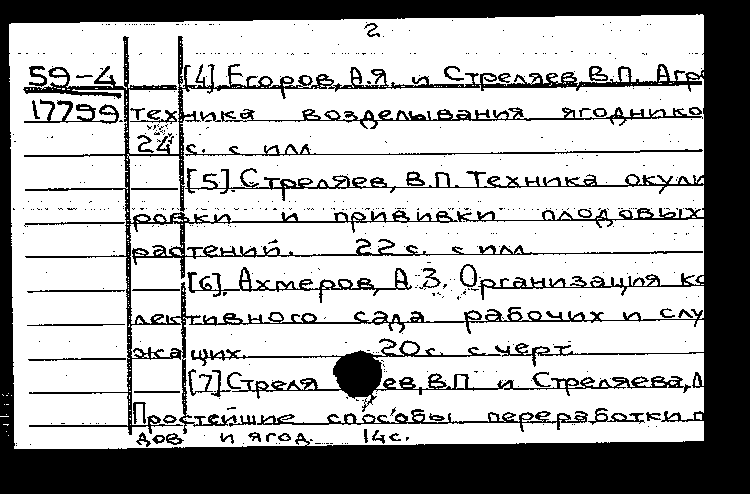 2
59-4 [4] Егоров, А.Я. и Стреляев, В.П. Агро
17799 техника возделывания ягоднико
24 с. с илл.
[5] Стреляев, В.П. Техника окули
ровки и прививки плодовых
растений. 22 с. с илл.
[6] Ахмеров, А.З. Организация ко
лективного сада рабочих и слу
жащих. 20 с. с черт.
[7] Стреляев, В.П. и Стреляева,
Простейшие способы переработки п
дов и ягод. 14 с.